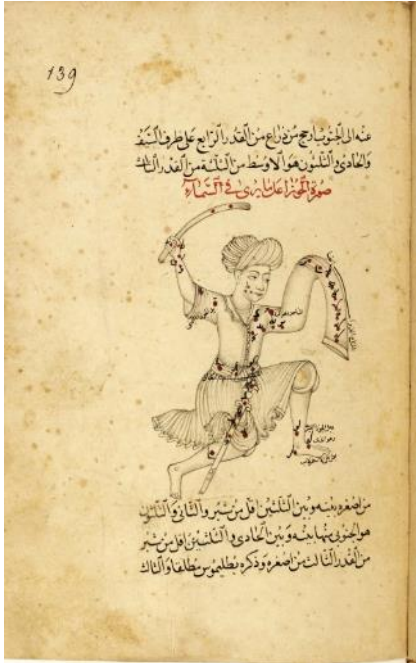 139
عنه الى الجنوب ارجح من ذراع من القدر الرابع على طرف السيف
والحادى والثلثون هو الاوسط من الثلثة من القدر الثالث
صورة الجوزا على ما يرى فى السماء
من اصغره بينه وبين الثلثين اقل من شبر والثانى والثلثون
هو الجنوبى منها بينه وبين الحادى والثلثين اقل من شبر
من القدر الثالث من اصغره وذكره بطليموس مطلقا والثالث